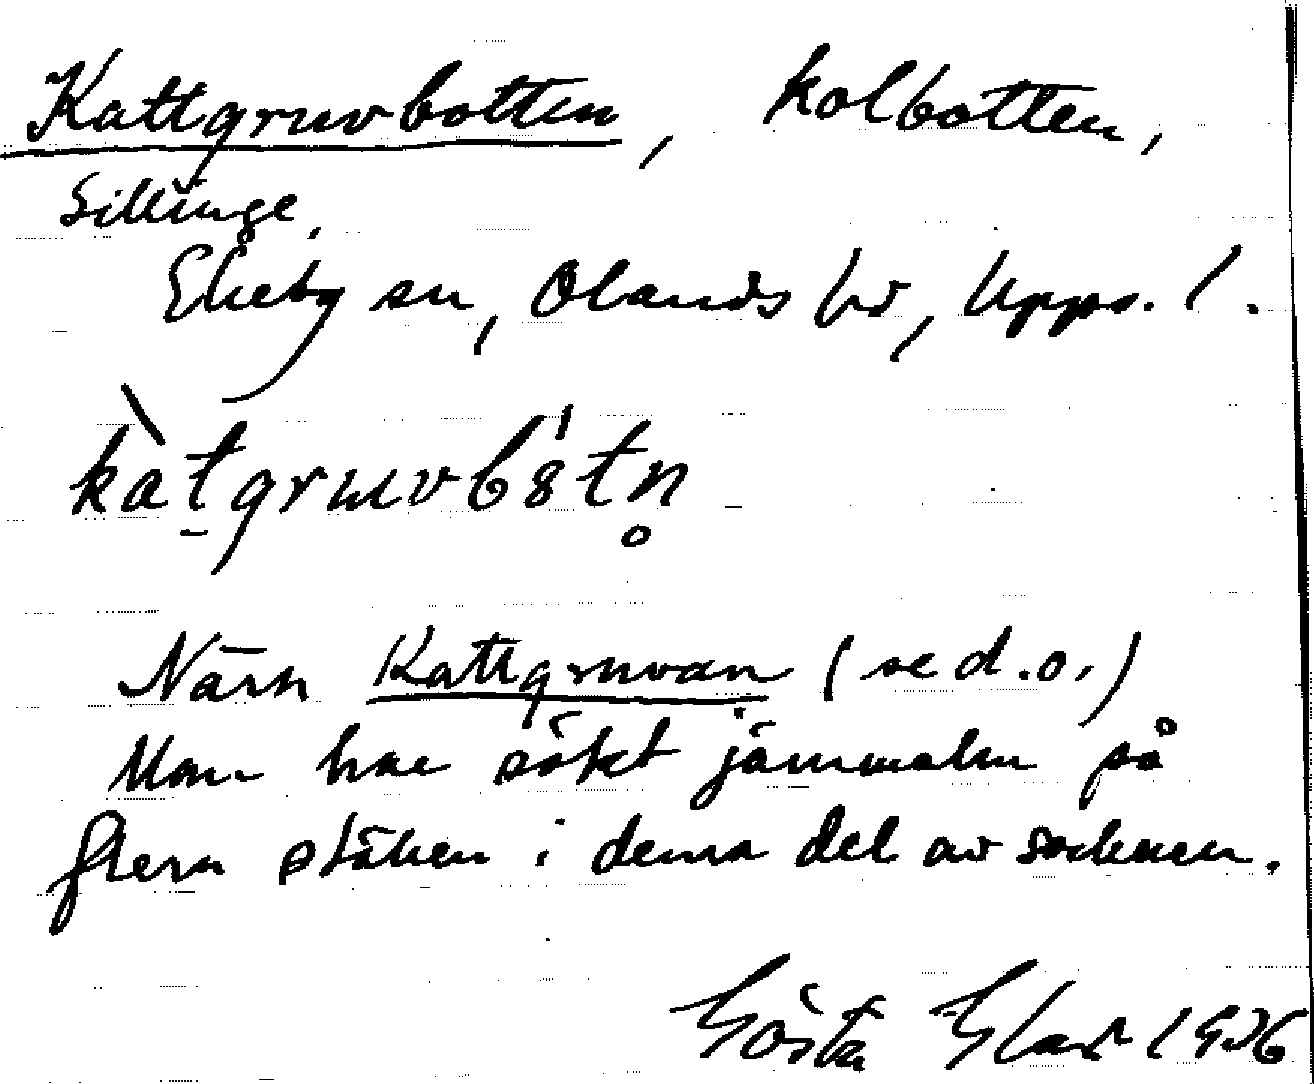 Kattgruvbotten, kolbotten,
Sillinge,
Ekeby sn, Olands hd, Upps. l.
kàtgruvbȣ́tn̥
Nära Kattgruvan (se d.o.)
Man har sökt järnmalm på
flera ställen i denna del av socknen.
Gösta 1936